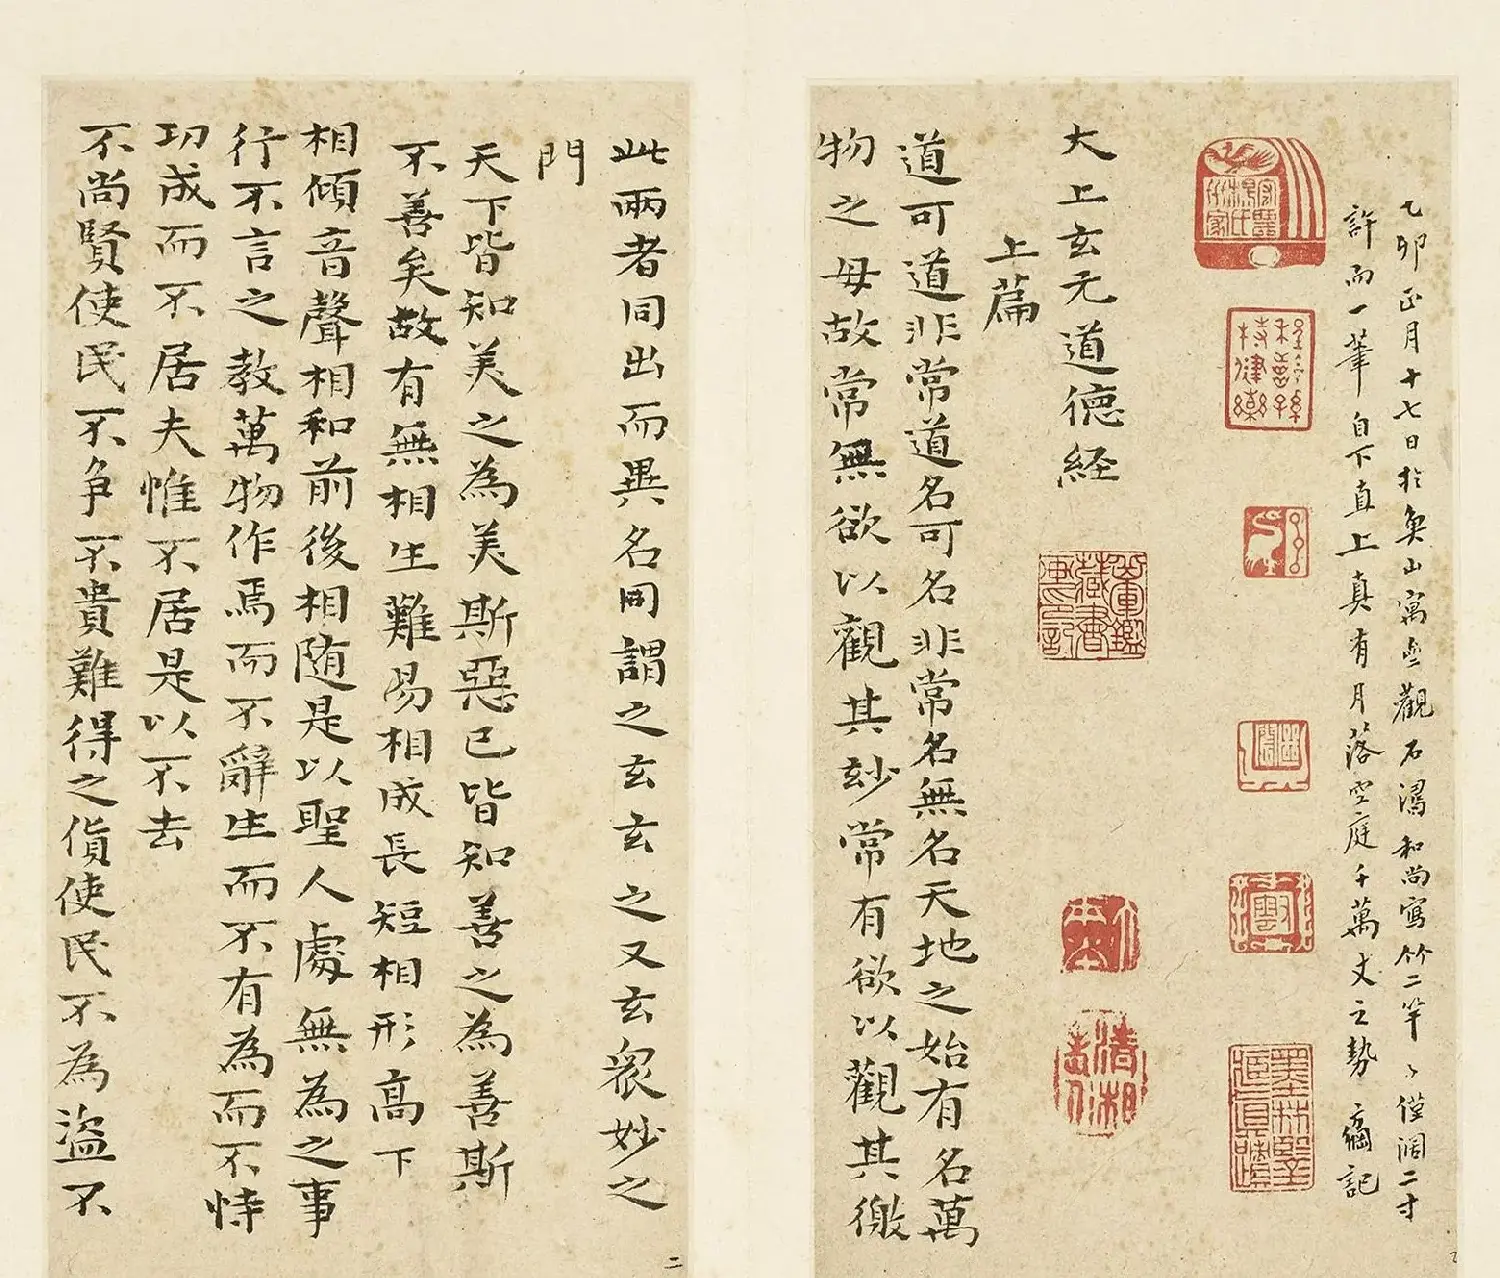 乙卯正月十七日於奐山寓觀石濤和尚寫竹二竿々僅闊二寸
許而一筆自下直上真有月落空庭千萬丈之勢 記
大上玄元道德経
清湘老人
上篇
道可道非常道名可名非常名無名天地之始有名萬
物之母故常無欲以觀其玅常有欲以觀其徼
此兩者同出而異名同謂之玄玄之又玄衆妙之
門
天下皆知美之為美斯惡已皆知善之為善斯
不善矣故有無相生難易相成長短相形高下
相傾音聲相和前後相随是以聖人處無為之事
行不言之教萬物作焉而不辭生而不有為而不恃
功成而不居夫惟不居是以不去
不尚賢使民不争不貴難得之貨使民不為盜不
二